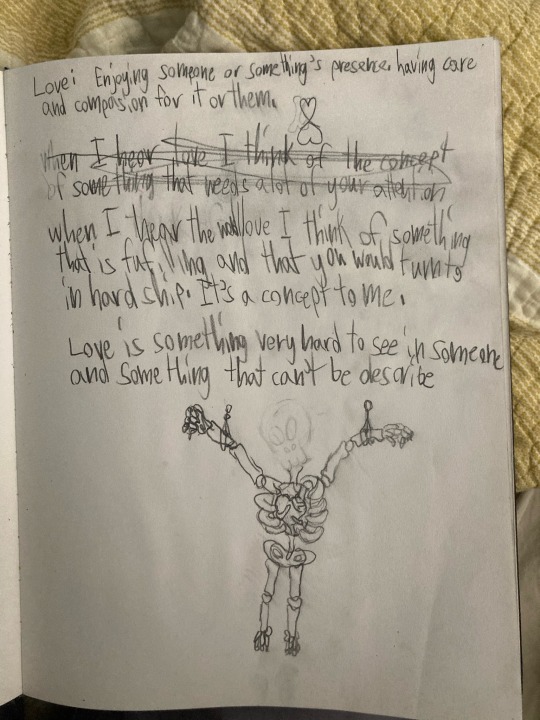 Love: Enjoying someone or something's presence, having care
and compassion for it or them.
when I hear love I think of the concept
of something that needs a lot of your attention
when I hear the word love I think of something
that is fulfilling and that you would turn to
in hard ship. It's a concept to me.
Love is something very hard to see in someone
and something that can't be describe